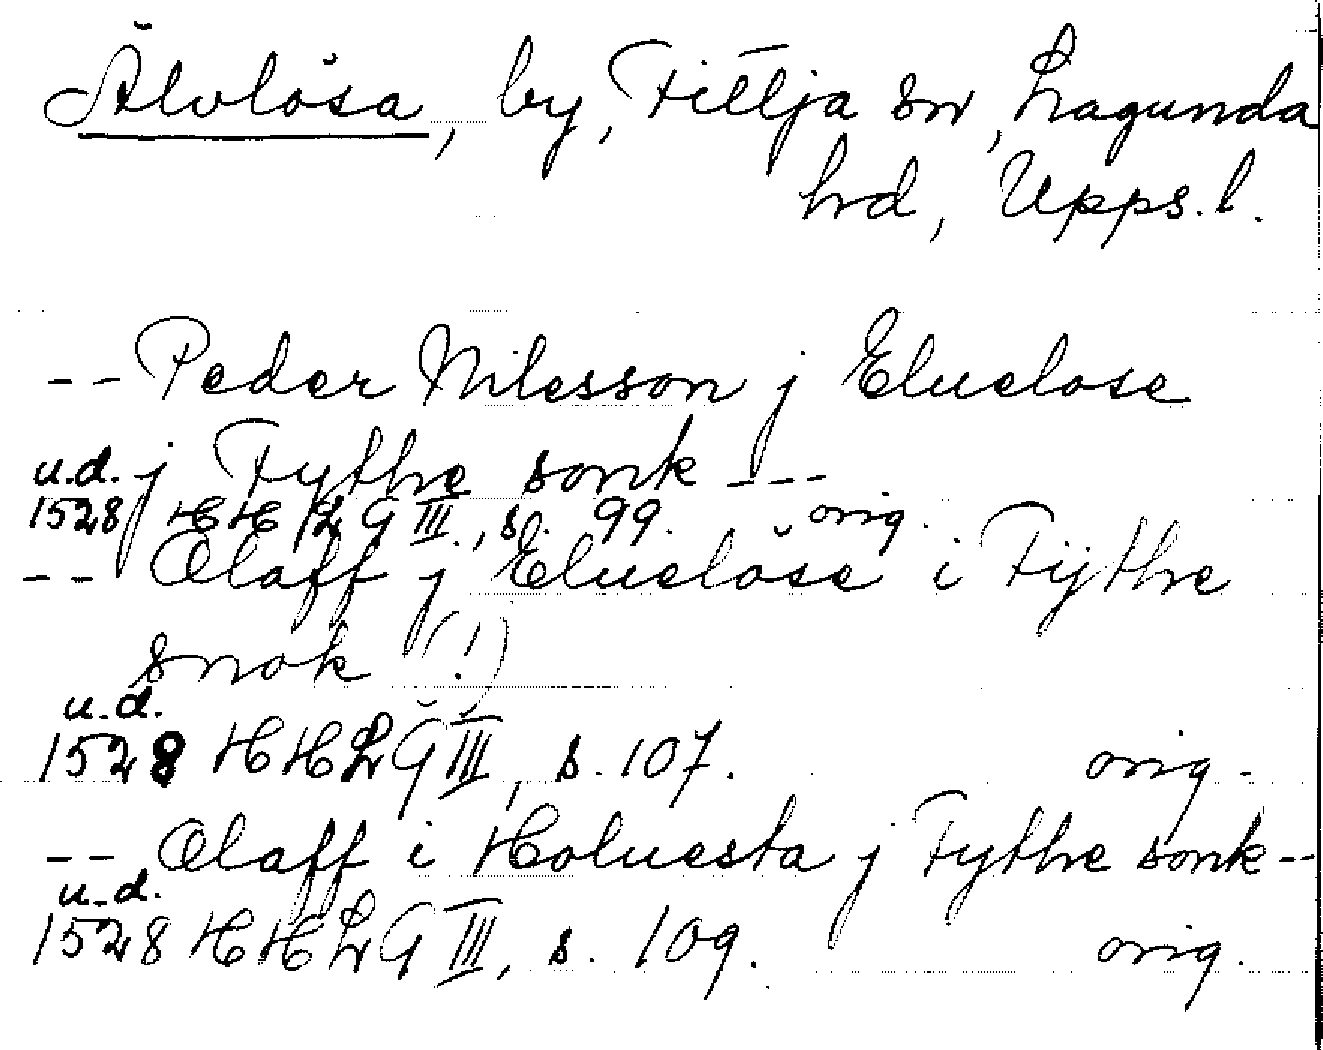 Älvlösa, by, Fittja sn, Lagunda
hd, Upps. l.
-- Peder Nilesson j Eluelose
j Fythe sonk ---
u.d.
1528 HHLG III, s. 99. orig.
-- Olaff j Elueløse i Fÿthe
snok (!)
u.d.
1528 HHLG III, s. 107. orig.
-- Olaff i Holuesta j Fythe sonk --
u.d.
1528 HHLG III, s. 109. orig.